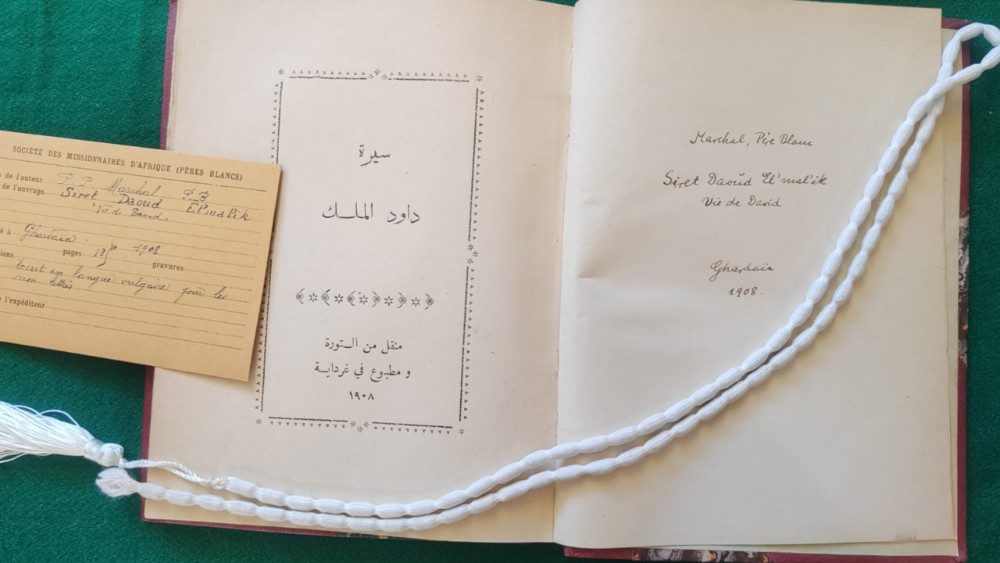 SOCIÉTÉ DES MISSIONNAIRES D'AFRIQUE (PÈRES BLANCS)
de l'auteur P. Marchal P.B.
de l'ouvrage Siret Daoud El'malik
"Vie de David"
é à Ghardaia 1908
ions pages gravures
Ecrit en langue vulgaire pour les
non lettrés
e l'expéditeur
سيرة
داود الملـــك
منقل من التـورة
و مطبوع في غرداية
١٩٠٨
Marchal, Père Blanc
Siret Daoŭd El'mal'ik
Vie de David
Ghardaïa
1908.